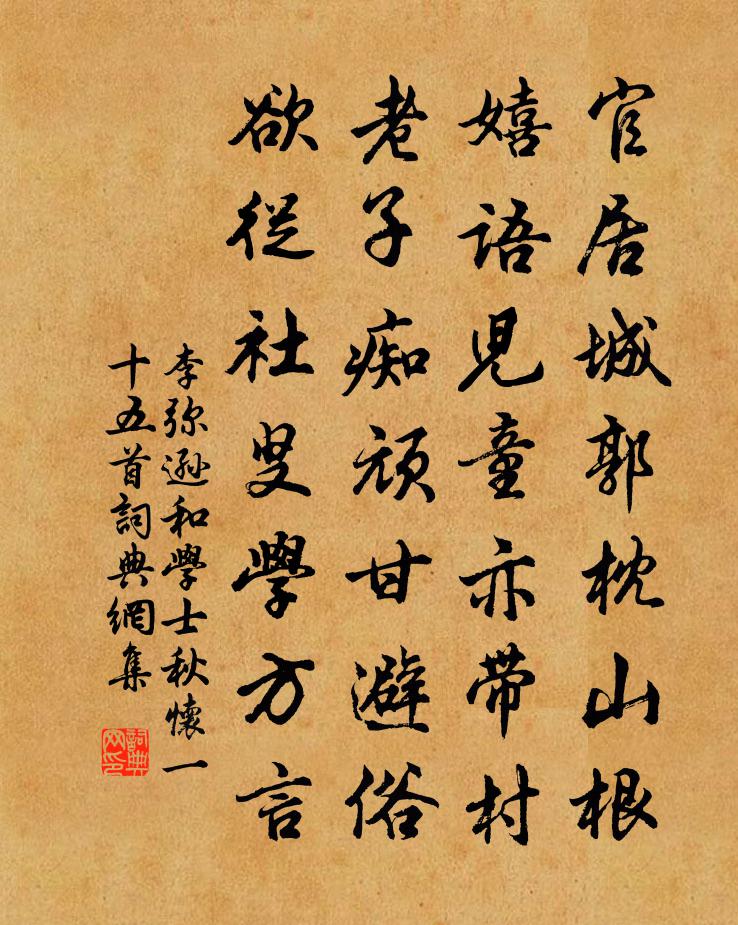 官居城郭枕山根
嬉語兒童亦帶村
老子痴頑甘避俗
欲從社叟學方言
李弥遜和學士秋懷一
十五首詞典網集
詞典网印